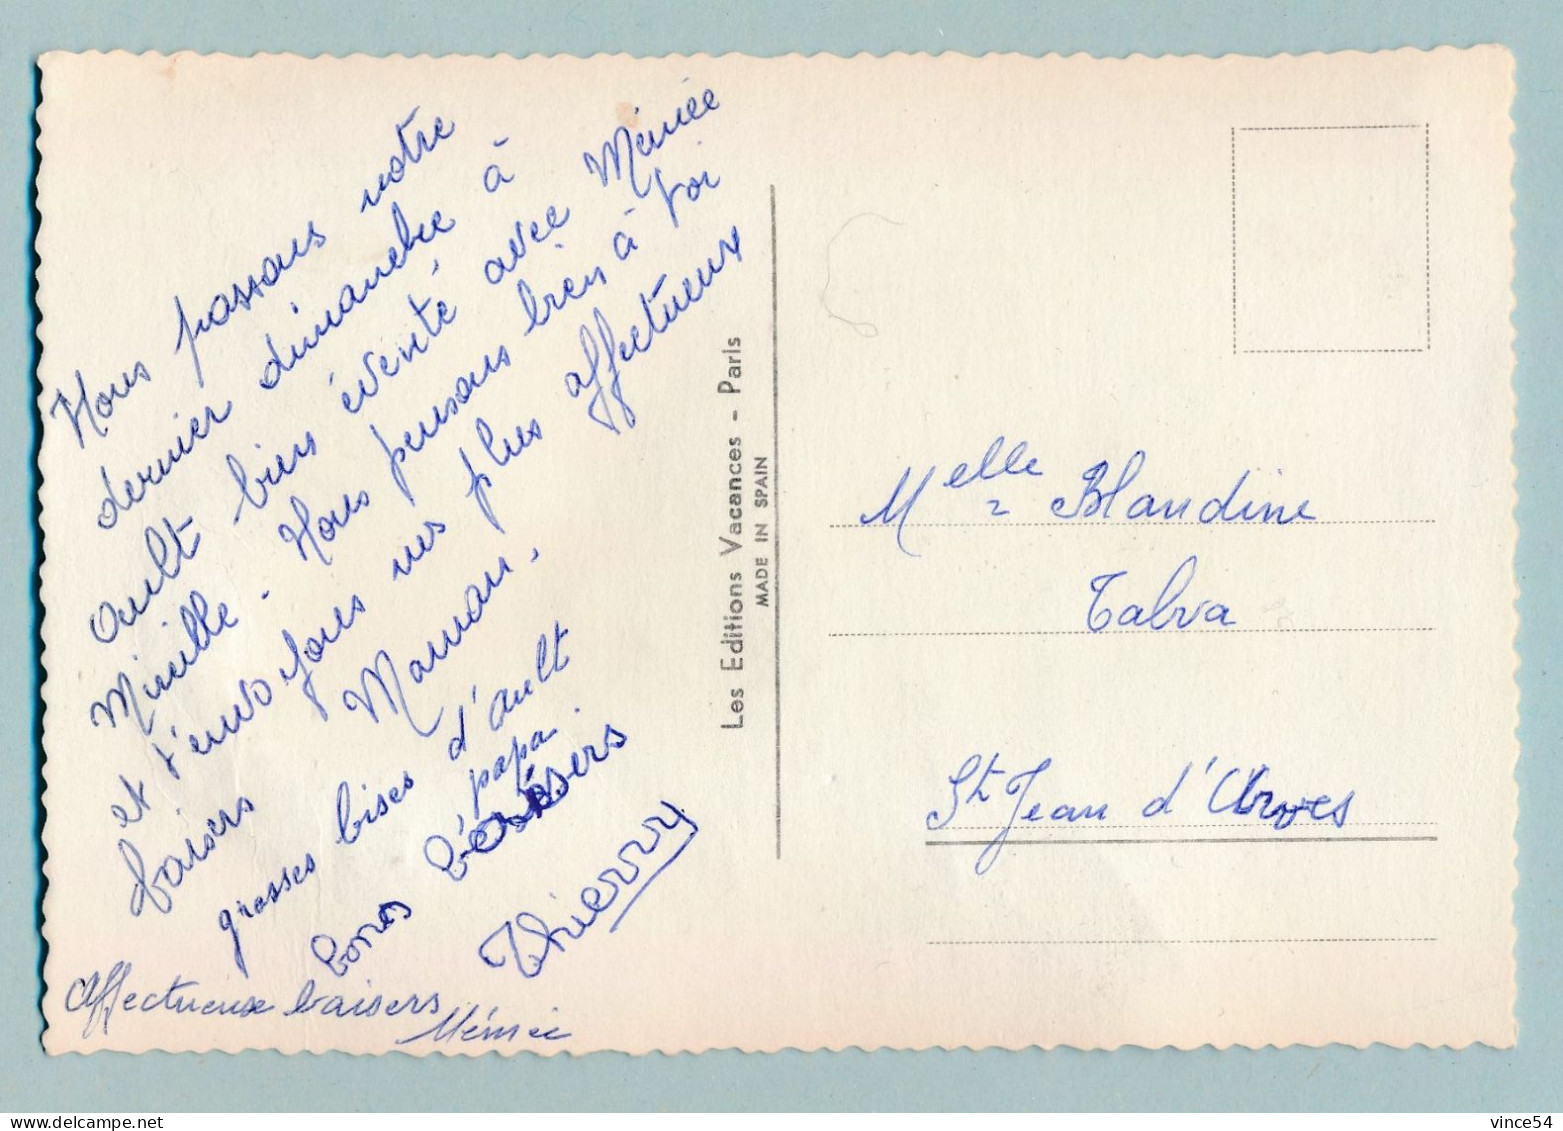 Nous passons notre
dernier dimanche à
Ault bien éventé avec Mémée
Mireille. Nous pensons bien à toi
et t'envoyons nos plus affectueux
baisers
Maman.
grosses bises d'ault
papa
bones baisers
Thierry
Affectueux baisers
Mémée
Les Editions Vacances - Paris
MADE IN SPAIN
Melle Blandine
Talva
St Jean d'Arves
delcampe.net
vince54